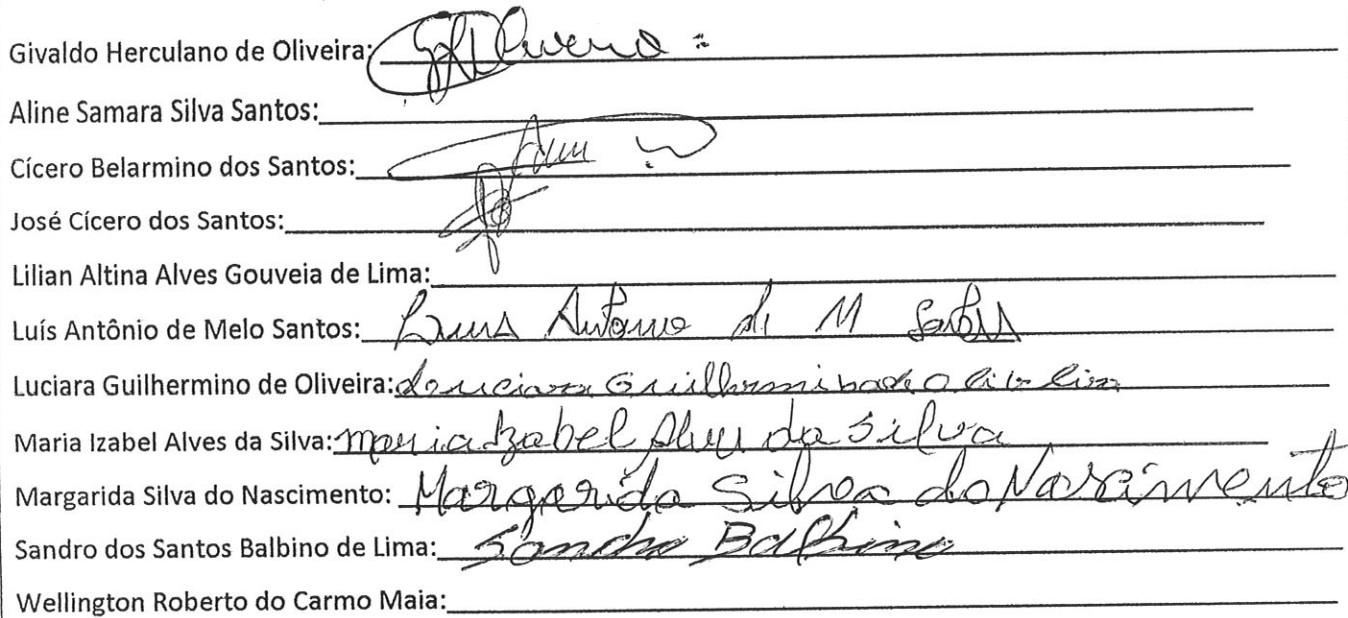 Givaldo Herculano de Oliveira: GHOliveira
Aline Samara Silva Santos:
Cícero Belarmino dos Santos:
José Cícero dos Santos:
Lilian Altina Alves Gouveia de Lima:
Luís Antônio de Melo Santos: Luis Antonio de M Santos
Luciara Guilhermino de Oliveira:
Maria Izabel Alves da Silva: Maria Izabel Alves da Silva
Margarida Silva do Nascimento: Margarida Silva do Nascimento
Sandro dos Santos Balbino de Lima: Sandro Balbino
Wellington Roberto do Carmo Maia: